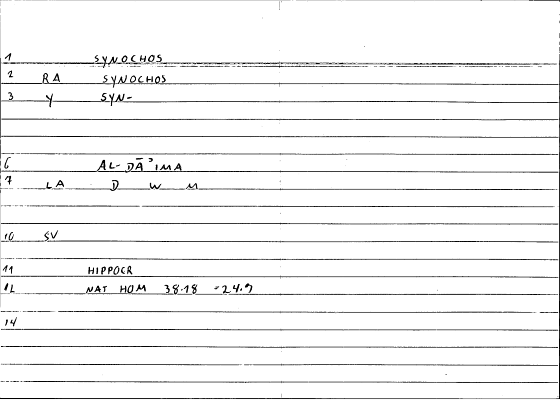 1 SYNOCHOS
2 RA SYNOCHOS
3 Y SYN-
6 AL-DĀʾIMA
7 LA D W M
10 SV
11 HIPPOCR
12 NAT HOM 38.18 -24.9
14